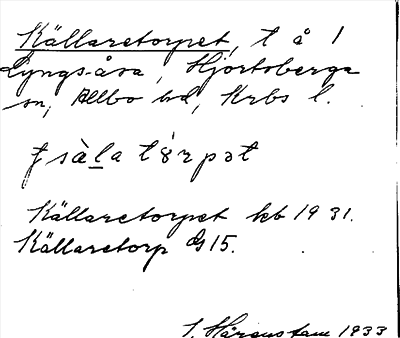 Källaretorpet, t å 1
Lyngsåsa, Hjortsberga
sn, Allbo hd, Krbs l.
t sàla tórpət
Källaretorpet kb 1931.
Källaretorp GS 15.
I. Hårenstam 1933